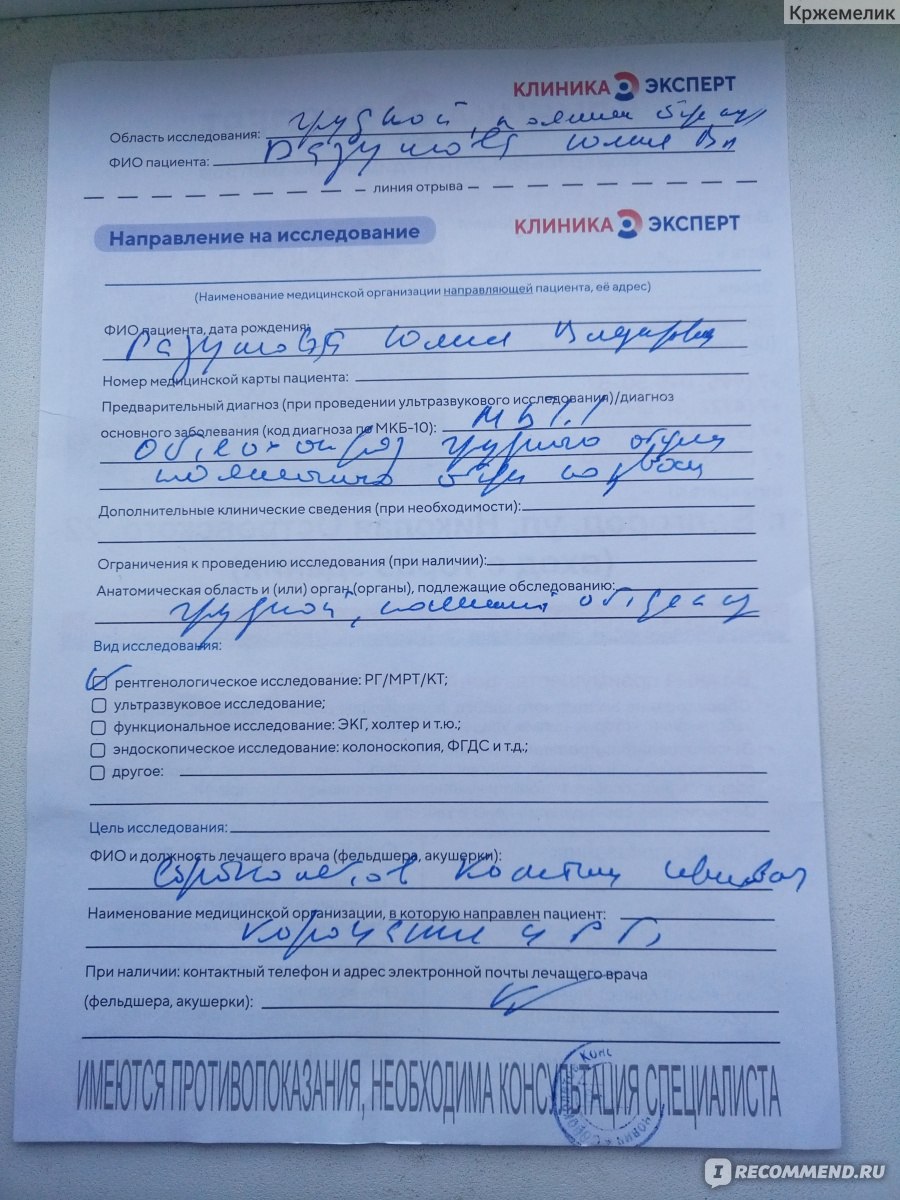 Кржемелик
КЛИНИКА ЭКСПЕРТ
Область исследования: грудной,
ФИО пациента: Разумова Юлия Вл
линия отрыва
КЛИНИКА ЭКСПЕРТ
Направление на исследование
(Наименование медицинской организации направляющей пациента, её адрес)
ФИО пациента, дата рождения:
Разумова Юлия
Номер медицинской карты пациента:
Предварительный диагноз (при проведении ультразвукового исследования)/диагноз
основного заболевания (код диагноза по МКБ-10):
грудного отдела
Дополнительные клинические сведения (при необходимости):
Ограничения к проведению исследования (при наличии):
Анатомическая область и (или) орган (органы), подлежащие обследованию:
грудной,
Вид исследования:
рентгенологическое исследование: РГ/МРТ/КТ;
ультразвуковое исследование;
функциональное исследование: ЭКГ, холтер и т.ю.;
эндоскопическое исследование: колоноскопия, ФГДС и т.д.;
другое:
Цель исследования:
ФИО и должность лечащего врача (фельдшера, акушерки):
Наименование медицинской организации, в которую направлен пациент:
При наличии: контактный телефон и адрес электронной почты лечащего врача
(фельдшера, акушерки):
ИМЕЮТСЯ ПРОТИВОПОКАЗАНИЯ, НЕОБХОДИМА КОНСУЛЬТАЦИЯ СПЕЦИАЛИСТА
IRECOMMEND.RU